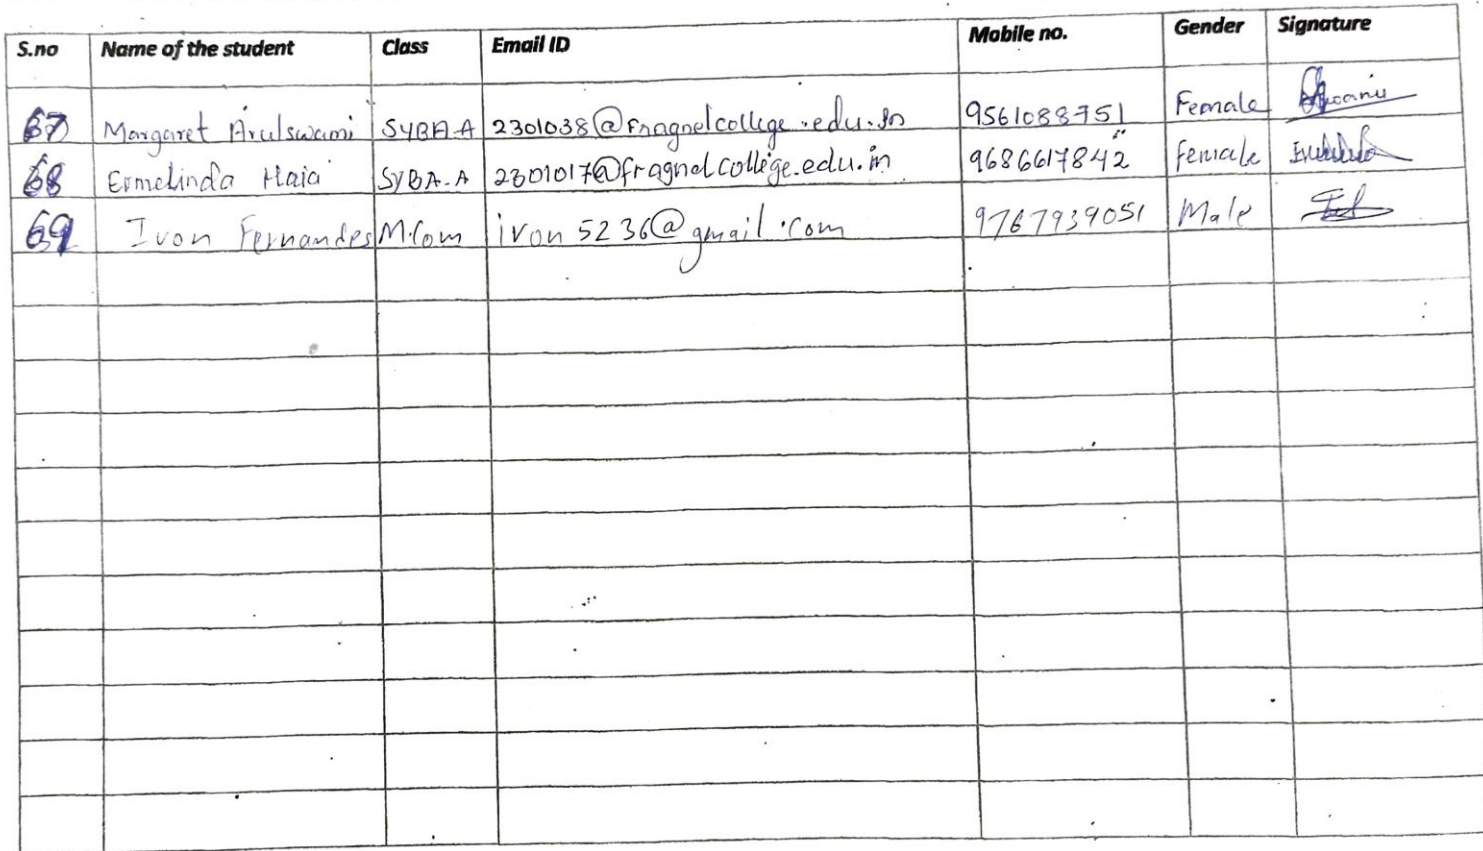 S.no Name of the student Class Email ID Mobile no. Gender Signature
67 Margaret Arulswami SYBA A 2301038@fragnelcollege.edu.in 9561088751 Female
68 Ermelinda Maia SYBA-A 2301017@fragnelcollege.edu.in 9686617842 Female
69 Ivon Fernandes M.Com ivon5236@gmail.com 9767939051 Male